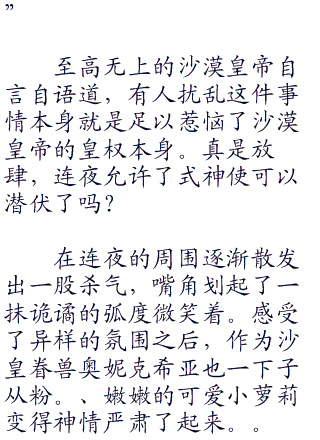 ”
至高无上的沙漠皇帝自
言自语道，有人扰乱这件事
情本身就是足以惹恼了沙漠
皇帝的皇权本身。真是放
肆，连夜允许了式神使可以
潜伏了吗？
在连夜的周围逐渐散发
出一股杀气，嘴角划起了一
抹诡谲的弧度微笑着。感受
了异样的氛围之后，作为沙
皇眷兽奥妮克希亚也一下子
从粉。、嫩嫩的可爱小萝莉
变得神情严肃了起来。。